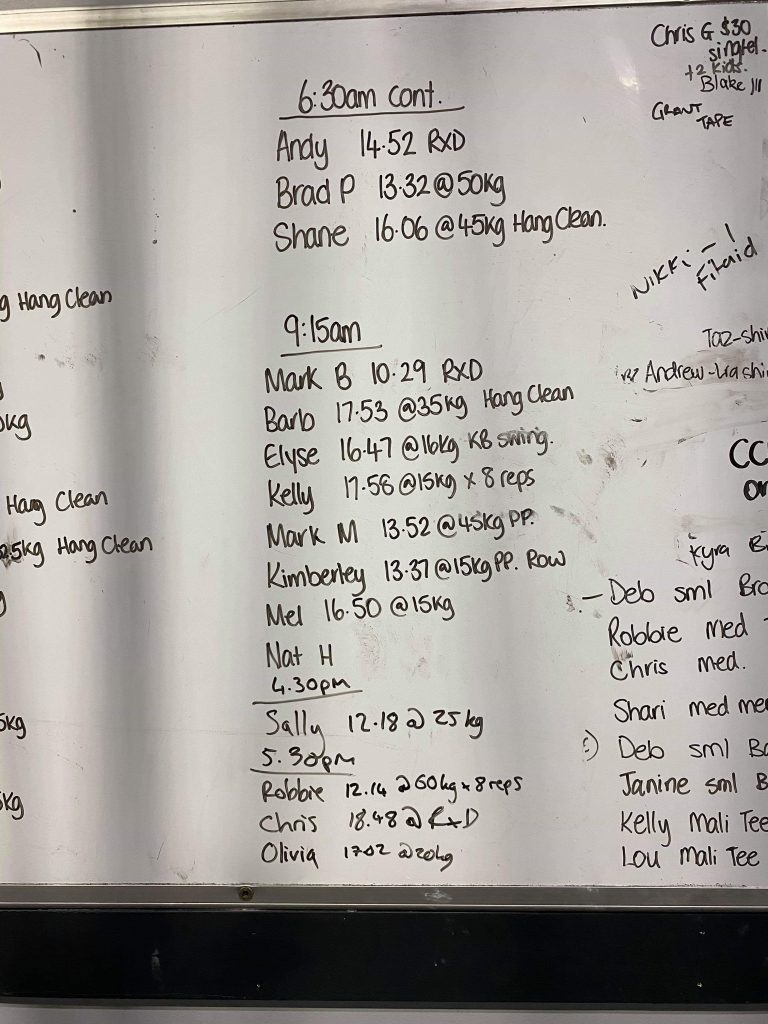 6:30am Cont.
Andy 14.52 RXD
Brad P 13.32 @ 50kg
Shane 16.06 @ 45kg Hang Clean.
9:15am
Mark B 10.29 RXD
Barb 17.53 @35kg Hang Clean
Elyse 16.47 @16kg KB swing.
Kelly 17.58 @15kg x 8 reps
Mark M 13.52 @ 45kg PP.
Kimberley 13.37 @15kg PP. Row
Mel 16.50 @15kg
Nat H
4.30pm
Sally 12.18 @ 25kg
5.30pm
Robbie 12.14 @ 60kg x 8 reps
Chris 18.48 @ RxD
Olivia 17.02 @ 20kg
g Hang Clean
kg
Hang Clean
2.5kg Hang Clean
5kg
5kg
Chris G $30
singlet.
+2 kids.
Blake
GRANT
TAPE
Nikki - 1
Fitaid
Taz-shi
Andrew-
CC
Or
Kyra B
- Deb sml Bro
Robbie med
Chris med.
Shari med me
Deb sml B
Janine sml B
Kelly Mali Tee
Lou Mali Tee